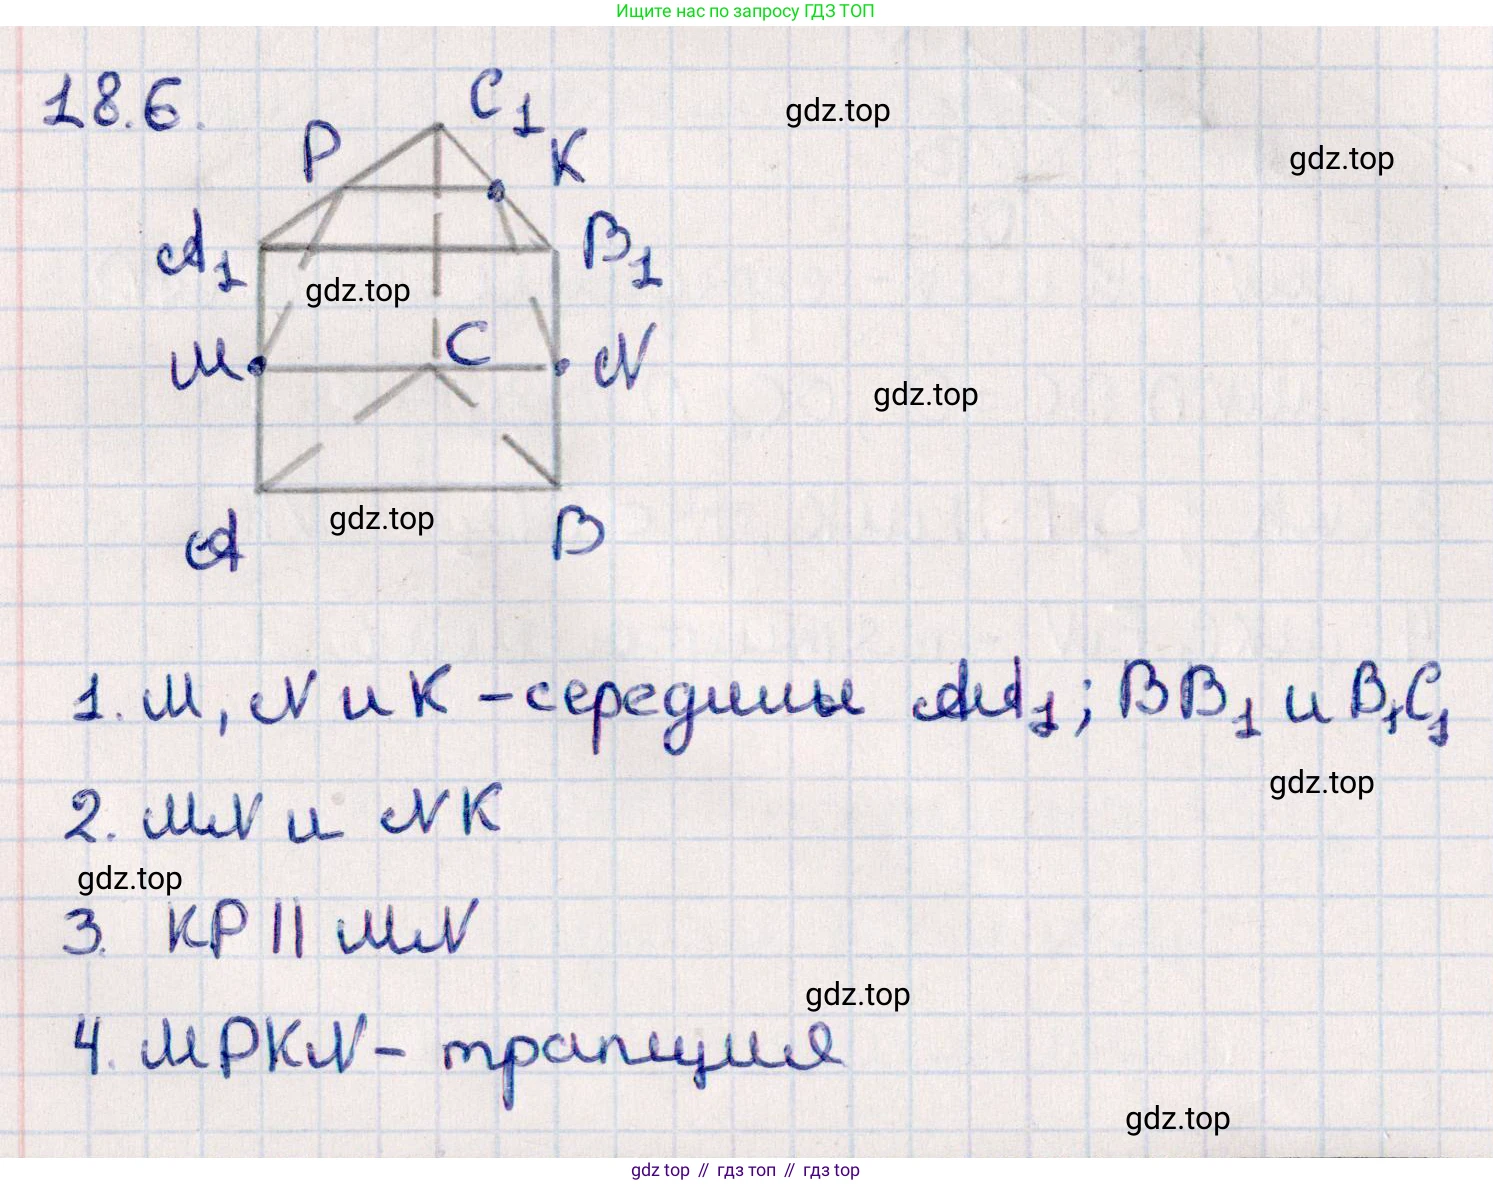 Ищите нас по запросу ГДЗ ТОП
18.6.
C₁
P
K
gdz.top
gdz.top
A₁
B₁
gdz.top
M
C
N
gdz.top
gdz.top
A
B
1. M, N и K - середины AA₁; BB₁ и B₁C₁
gdz.top
2. MN и NK
gdz.top
3. KP || MN
gdz.top
4. MPKN - трапция
gdz.top
gdz top // гдз топ // гдз top